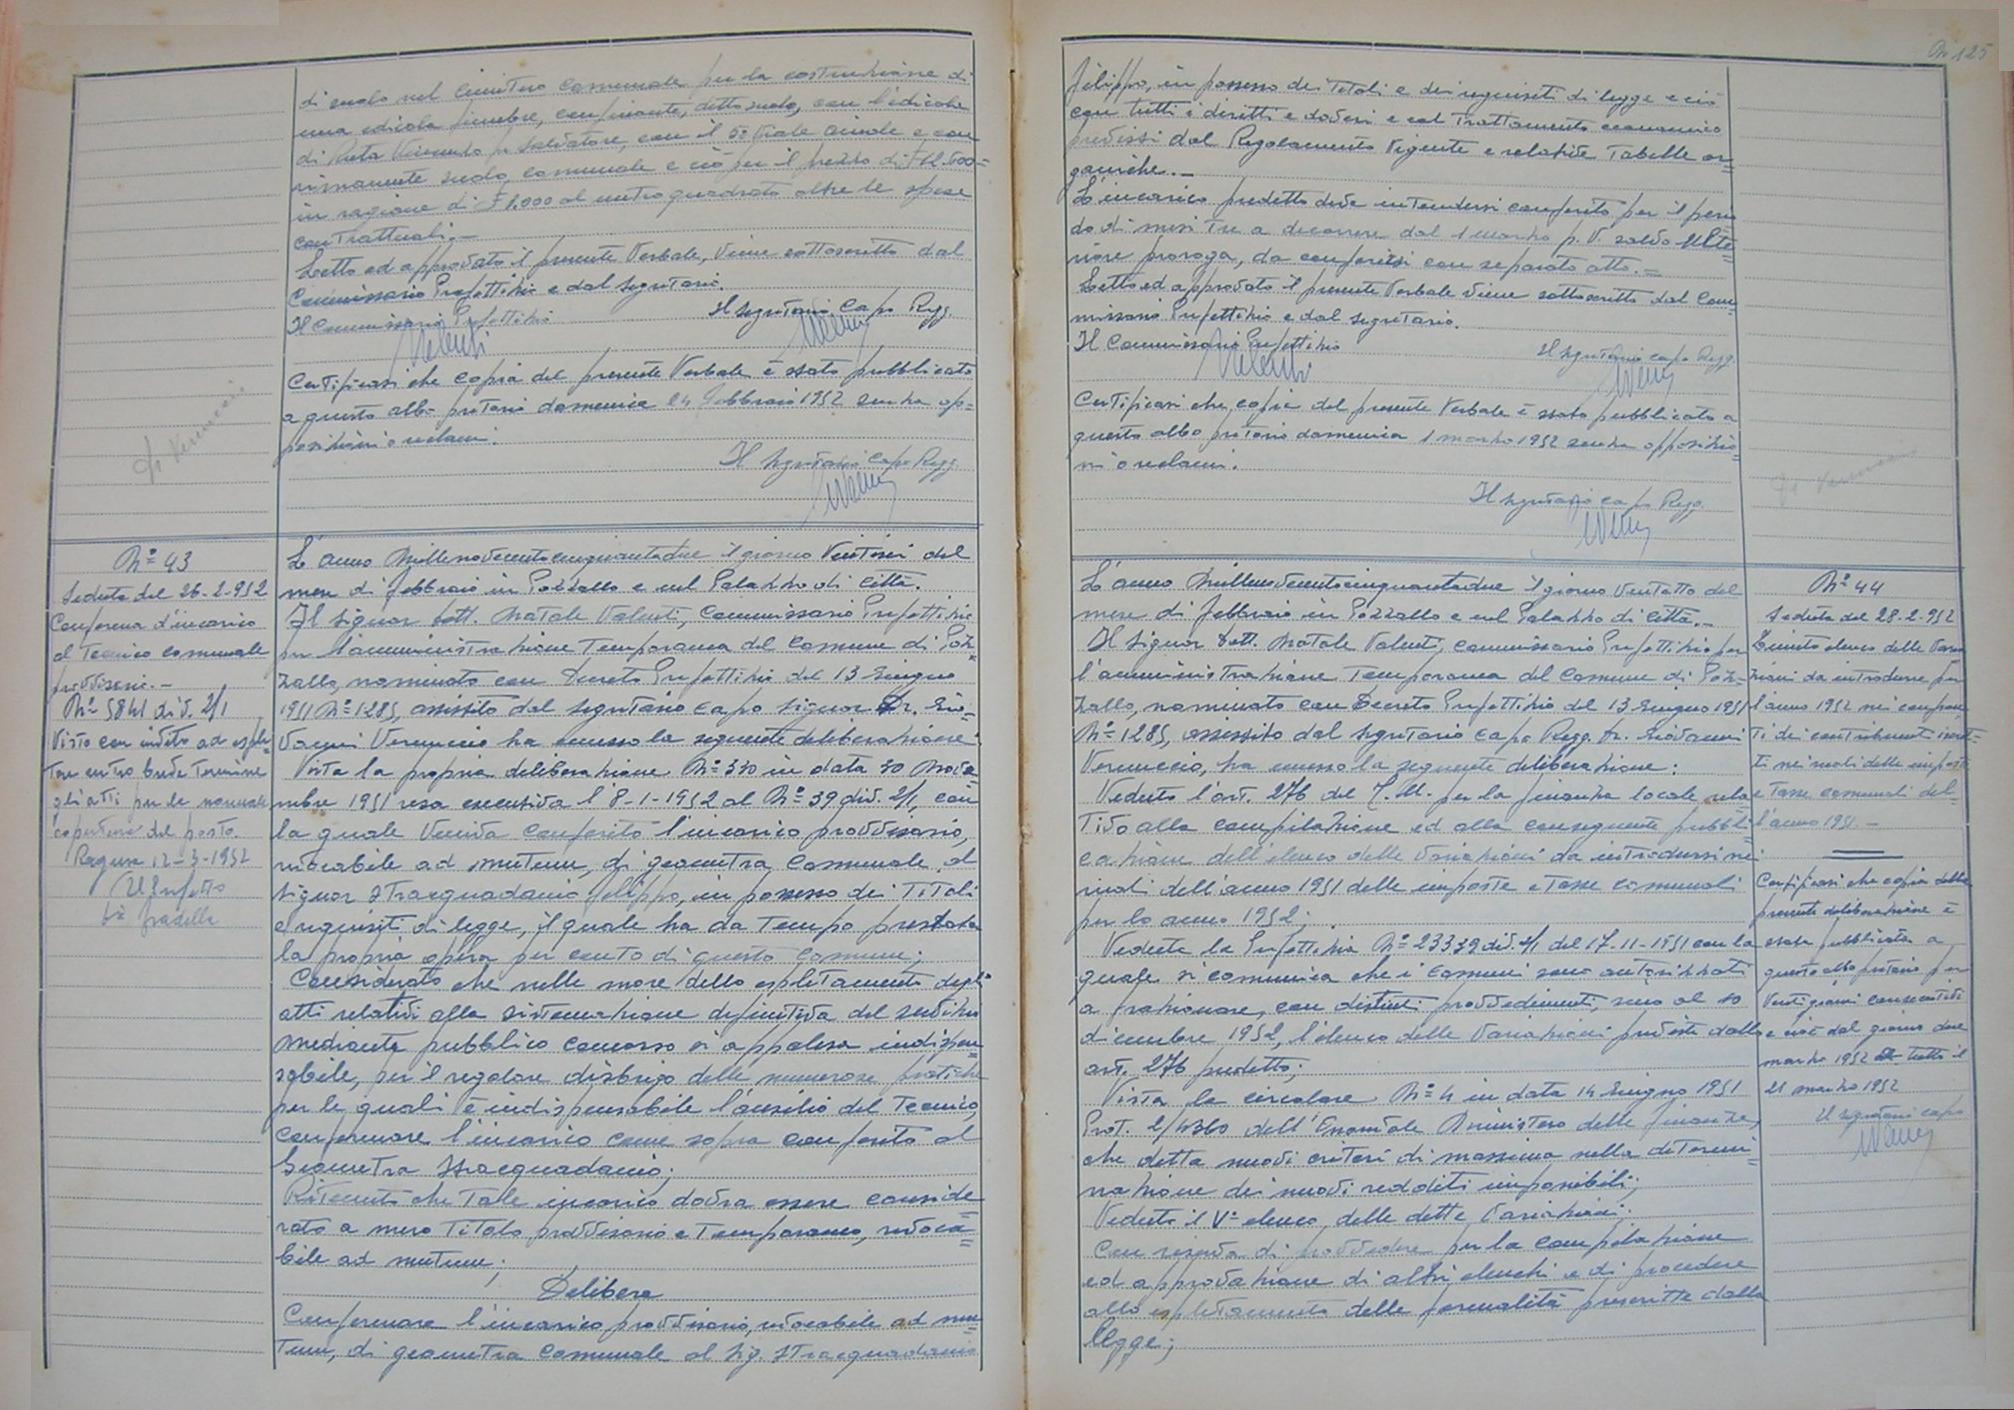 di suolo nel Cimitero Comunale per la costruzione di
una edicola funebre, confinante, detto suolo, con l'edicola
di Ruta Vincenzo fu Salvatore, con il 5º Viale e con
rimanente suolo comunale e ciò per il prezzo di
in ragione di £ 1.000 al metro quadrato oltre le spese
contrattuali.-
Letto ed approvato il presente Verbale, viene sottoscritto dal
Commissario Prefettizio e dal Segretario.
Il Commissario Prefettizio Il Segretario Capo Regg.
Valenti
Certificasi che copia del presente Verbale è stata pubblicata
a questo albo pretorio domenica 24 Febbraio 1952 senza op=
posizioni o reclami.
Il Segretario Capo Regg.
Nº 43
Seduta del 26-2-952
Conferma d'incarico
al Tecnico Comunale
provvisorio.-
Nº 5841 div. 2/1
Visto con invito ad esple=
tare entro breve termine
gli atti per la normale
copertura del posto.
Ragusa 12-3-1952
Il Prefetto
L'anno Millenovecentocinquantadue il giorno Ventisei del
mese di Febbraio in Pozzallo e nel Palazzo di Città.
Il Signor Dott. Natale Valenti, Commissario Prefettizio
per l'amministrazione Temporanea del Comune di Poz=
zallo, nominato con Decreto Prefettizio del 13 Giugno
1951 Nº 1285, assistito dal Segretario Capo Signor Dr. Gio=
vanni Vernuccio ha emesso la seguente deliberazione:
Vista la propria deliberazione Nº 330 in data 30 Nove=
mbre 1951 resa esecutiva l'8-1-1952 al Nº 39 div. 2/1, con
la quale veniva conferito l'incarico provvisorio,
revocabile ad nutum, di geometra Comunale al
Signor Stracquadanio Filippo, in possesso dei Titoli
e requisiti di legge, il quale ha da tempo prestata
la propria opera per conto di questo Comune;
Considerato che nelle more dello espletamento degli
atti relativi alla sistemazione definitiva del servizio
mediante pubblico concorso si appalesa indispen=
sabile, per il regolare disbrigo delle numerose pratiche
per le quali è indispensabile l'ausilio del Tecnico,
confermare l'incarico come sopra conferito al
Geometra Stracquadanio;
Ritenuto che Tale incarico dovrà essere conside=
rato a mero Titolo provvisorio e Temporaneo, revoca=
bile ad nutum;
Delibera
Confermare l'incarico provvisorio, revocabile ad nu=
tum, di geometra Comunale al Sig. Stracquadanio
Nº 125
Filippo, in possesso dei Titoli e dei requisiti di legge e ciò
con tutti i diritti e doveri e col Trattamento economico
previsti dal Regolamento Vigente e relative Tabelle or=
ganiche.-
L'incarico predetto deve intendersi conferito per il perio
do di mesi tre a decorrere dal 1 marzo p.v. salvo ulte=
riore proroga, da conferirsi con separato atto.-
Letto ed approvato il presente Verbale viene sottoscritto dal Com=
missario Prefettizio e dal Segretario.
Il Commissario Prefettizio Il Segretario Capo Regg.
Valenti
Certificasi che copia del presente Verbale è stata pubblicata a
questo albo pretorio domenica 1 marzo 1952 senza opposizio=
ni o reclami.
Il Segretario Capo Regg.
L'anno Millenovecentocinquantadue il giorno Ventotto del
mese di Febbraio in Pozzallo e nel Palazzo di Città.-
Il Signor Dott. Natale Valenti, Commissario Prefettizio per
l'amministrazione Temporanea del Comune di Poz=
zallo, nominato con Decreto Prefettizio del 13 Giugno 1951
Nº 1285, assistito dal Segretario Capo Regg. Dr. Giovanni
Vernuccio, ha emesso la seguente deliberazione:
Veduto l'art. 276 del T.U. per la finanza locale rela
tivo alla compilazione ed alla conseguente pubbli
cazione dell'elenco delle Variazioni da introdursi nei
ruoli dell'anno 1951 delle imposte e Tasse comunali
per lo anno 1952;
Veduta la Prefettizia Nº 23339 div. 2/1 del 17-11-1951 con la
quale si comunica che i Comuni sono autorizzati
a frazionare, con distinti provvedimenti, sino al 10
dicembre 1952, l'elenco delle Variazioni previste dallo
art. 276 predetto;
Vista la circolare Nº 4 in data 14 Giugno 1951
Prot. 2/4360 dell'On/le Ministero delle Finanze,
che detta nuovi criteri di massima nella determi=
nazione dei nuovi redditi imponibili;
Veduto il Vº elenco delle dette Variazioni.
Con riserva di provvedere per la compilazione
ed approvazione di altri elenchi e di procedere
allo espletamento delle formalità prescritte dalla
legge;
Nº 44
Seduta del 28-2-952
Quinto elenco delle Varia
zioni da introdurre per
l'anno 1952 nei confron
ti dei contribuenti iscrit=
ti nei ruoli delle imposte
e Tasse comunali del=
l'anno 1951.-
Certificasi che copia della
presente deliberazione è
stata pubblicata a
questo albo pretorio per
Venti giorni consecutivi
e cioè dal giorno due
marzo 1952 a tutto il
21 marzo 1952
Il Segretario Capo